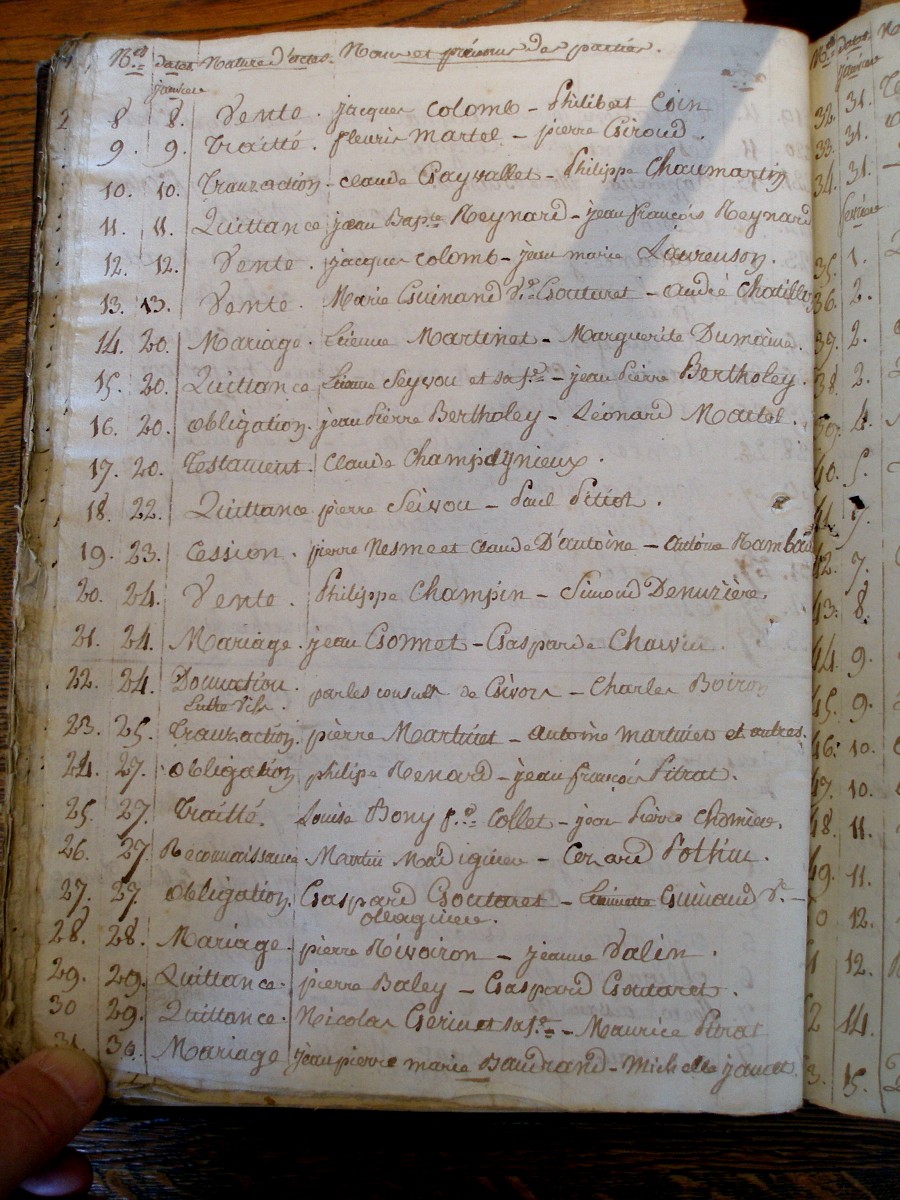 N.os dates Nature d'actes. Noms et prénoms des parties.
janvier
2 8 8. Vente. jacques Colomb - Philibert Coin
9. 9. Traitté. fleurie Martel - pierre Giroud.
10. 10. Tranzaction - claude Gayvallet - Philippe Chaumartin
11. 11. Quittance jean Bapte Reynard - jean françois Reynard
12. 12. Vente. jacques Colomb - jean marie Laurenson.
13. 13. Vente. Marie Guinand Ve Goutaret - andré Chatillon
14. 20. Mariage. Etienne Martinet - Marguerite Dumaine.
15. 20. Quittance Seyvou et sa fe - jean Pierre Bertholey.
16. 20. obligation. jean Pierre Bertholey - Léonard Martel.
17. 20. Testament. Claude Champdynieux.
18. 22. Quittance pierre Seivou - Paul Pitiot.
19. 23. Cession. pierre Nesme et Claude D'antoine - antoine Rambaud
20. 24. Vente. Philippe Champin - Simond Denuzière.
21. 24. Mariage. jean Gonnet - Gasparde Charvin.
22. 24. Donnation. par les consuls de Givors - Charles Boiron
Entre Vifs.
23. 25. Tranzaction. pierre Martinet - antoine martinet et autres.
24. 27. obligation philipe Renard - jean françois Pitrat.
25. 27. Traitté. Louise Bony Collet - jean Pierre Chomière.
26. 27 Reconnaissance. Martin - Pothin.
27. 27. obligation. Gaspard Goutaret - Guinand Ve -
28. 28. Mariage. pierre Rivoiron - jeanne Valin.
29. 29. Quittance. pierre Baley - Gaspard Goutaret.
30 29. Quittance. Nicolas Gerin et sa fe - Maurice Pitrat
31. 30. Mariage jean pierre marie Baudrand - Michelle
N.os dates
janvier
32. 31.
33. 31.
34. 31.
fevrier
35. 1.
36. 2.
37. 2.
38. 2.
39. 4.
40. 5.
41. 7.
42. 7.
43. 8.
44. 9.
45. 9.
46. 10.
47. 10.
48. 11.
49. 11.
0 12.
12.
2 14.
3. 15.